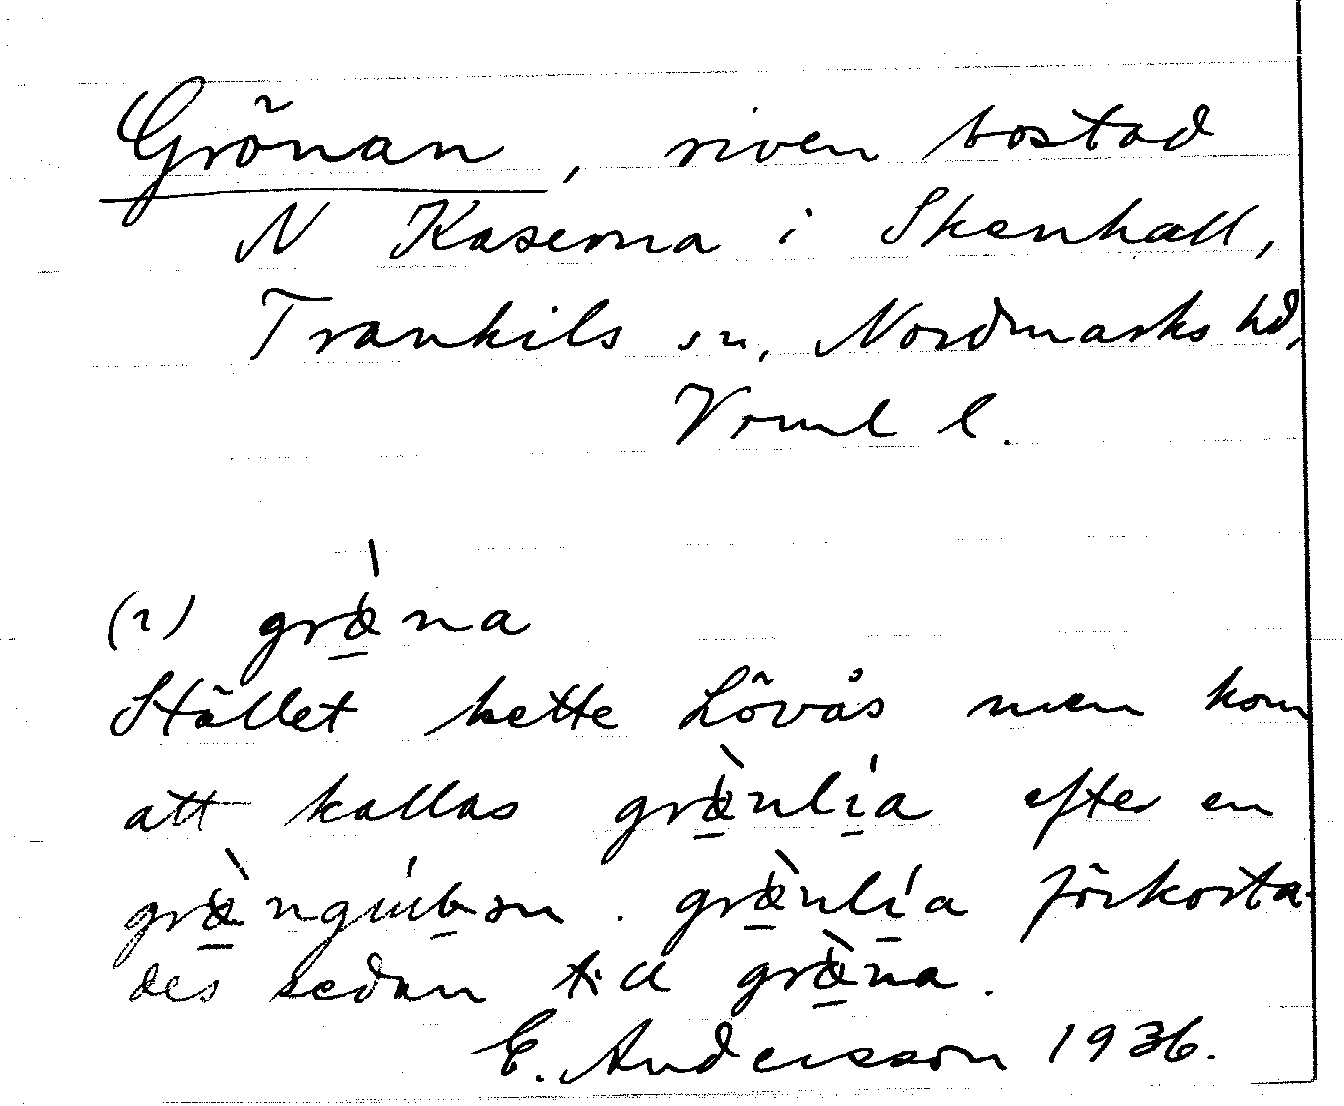 Grönan, riven bostad
N Kaserna i Skenhall,
Trankils sn, Nordmarks hd,
Vrml l.
(2) græ̀na
Stället hette Lövås men kom
att kallas græ̀nlía efter en
. græ̀nlía förkorta-
des sedan till græ̀na.
E. Andersson 1936.